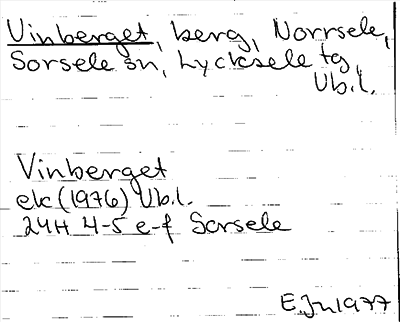 Vinberget, berg, Norrsele,
Sorsele sn, Lycksele tg
Vb.l.
Vinberget
ek (1976) Vb.l.
24H 4-5 e-f Sorsele
E.Jn 1977